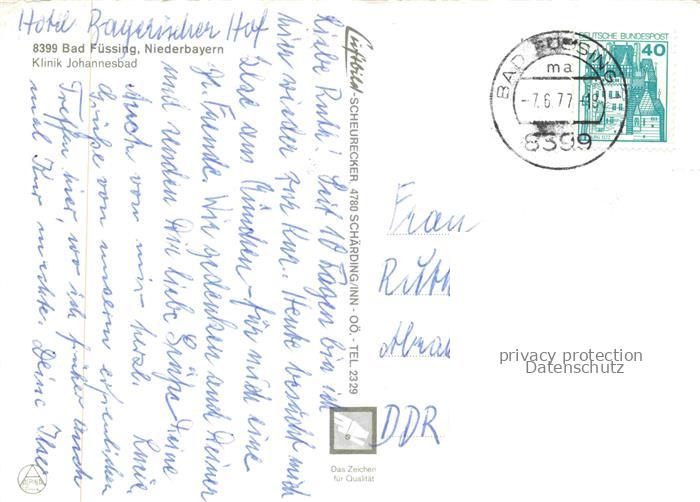 Hotel Bayerischer Hof
8399 Bad Füssing, Niederbayern
Klinik Johannesbad
Liebe Ruth! Seit 10 Tagen bin ich
hier wieder zur Kur. Heute besucht mich
Ilse aus München - für mich eine
gr. Freude. Wir gedenken auch Deiner
und senden Dir liebe Grüße Deine
Auch von mir herzl.
Grüße von unserm erfreulichen
Treffen hier, wo ich früher auch
mal Kur machte. Deine Ilse
Luftbild SCHEURECKER, 4780 SCHÄRDING/INN - OÖ. - TEL. 2329
DEUTSCHE BUNDESPOST
40
BAD FÜSSING
ma
-7.6.77-18
8399
Frau
Ruth
DDR
privacy protection
Datenschutz
Das Zeichen
für Qualität